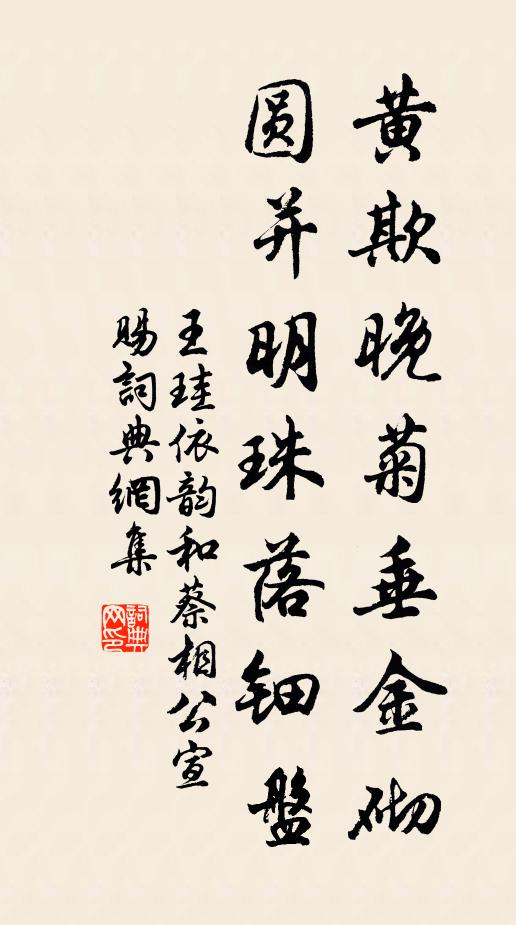 黄欺晚菊垂金砌
圆并明珠落钿盤
王珪依韵和蔡相公宣
賜詞典網集
詞典网印